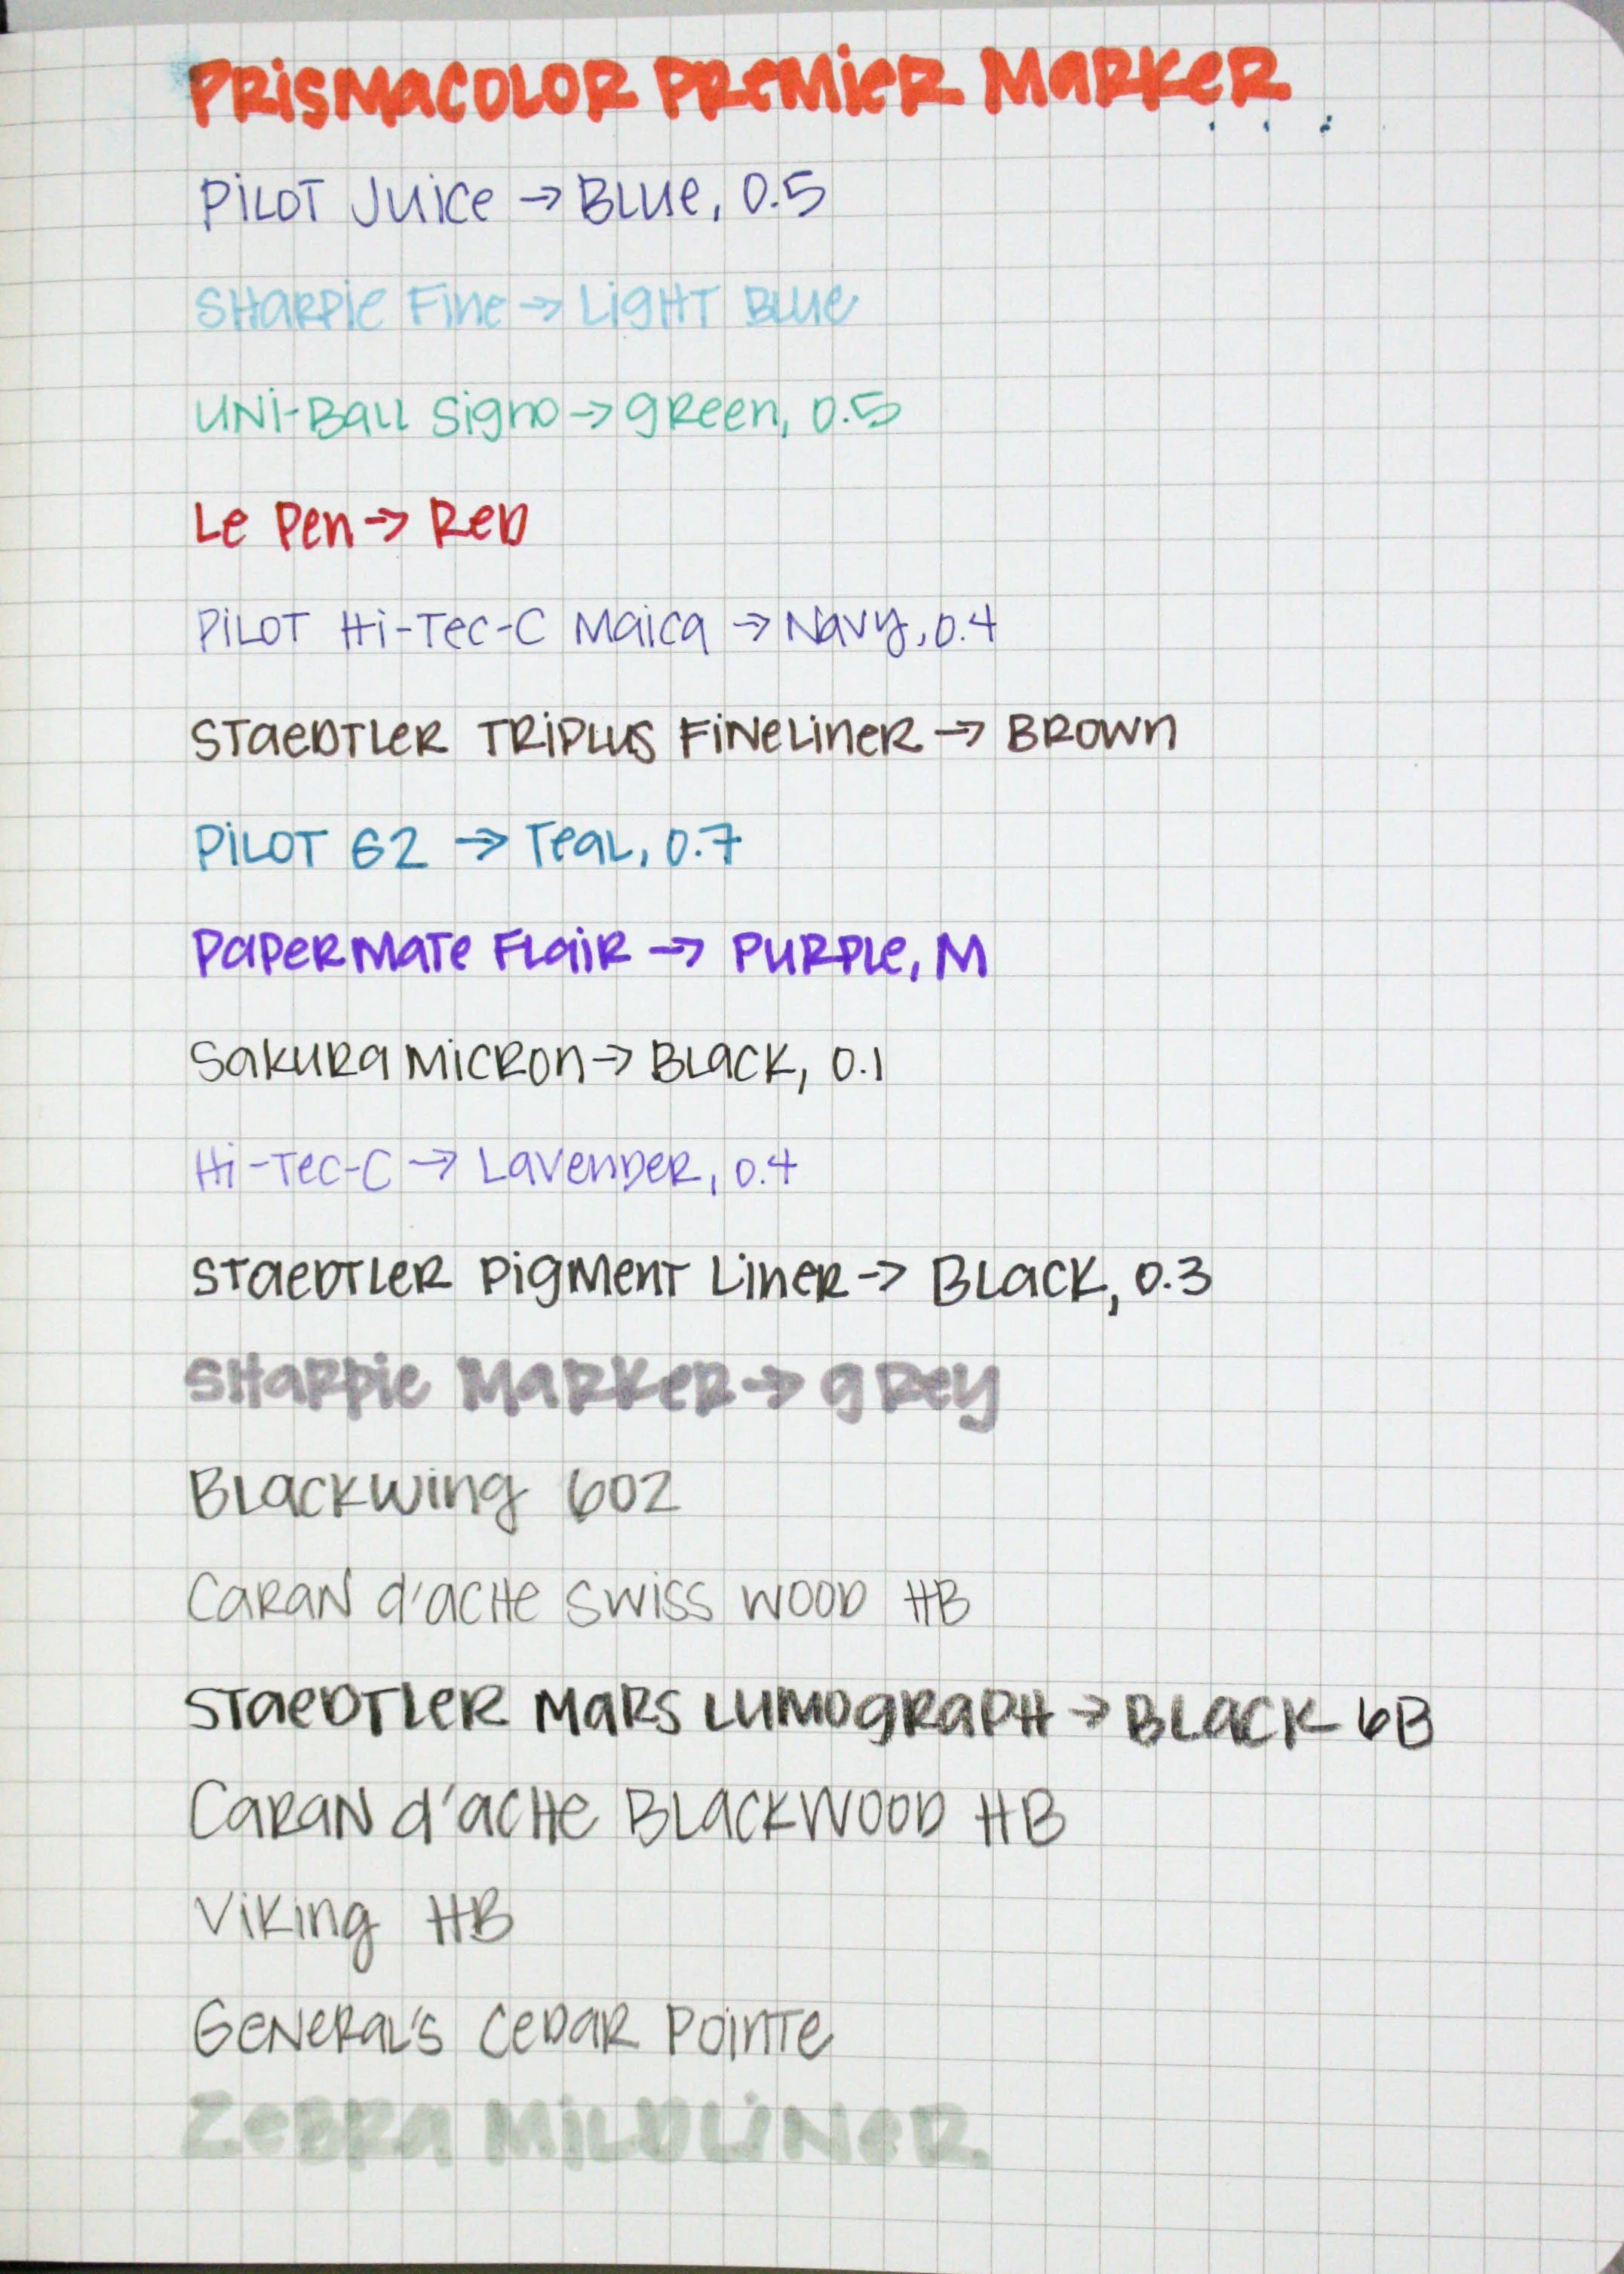 PRiSMaCOLOR PReMieR MaRKeR
PiLOT Juice → BLue, 0.5
SHaRPie Fine → LigHT BLue
uNi-BaLL Signo → gReen, 0.5
Le Pen → ReD
PiLOT Hi-Tec-C Maica → Navy, 0.4
STaeDTLeR TRiPLuS FiNeLineR → BROWn
PiLOT G2 → TeaL, 0.7
PaPeRMaTe FLaiR → PuRPLe, M
SaKuRa MiCRon → BLaCK, 0.1
Hi-Tec-C → LavenDeR, 0.4
STaeDTLeR PigMenT LineR → BLaCK, 0.3
SHaRPie MaRKeR → gRey
BLaCKwing 602
CaRaN d'aCHe SWiSS WOOD HB
STaeDTLeR MaRS LuMOgRaPH → BLaCK 6B
CaRaN d'aCHe BLaCKWOOD HB
ViKing HB
GeNeRaL'S CeDaR POinTe
ZeBRa MiLDLiNeR